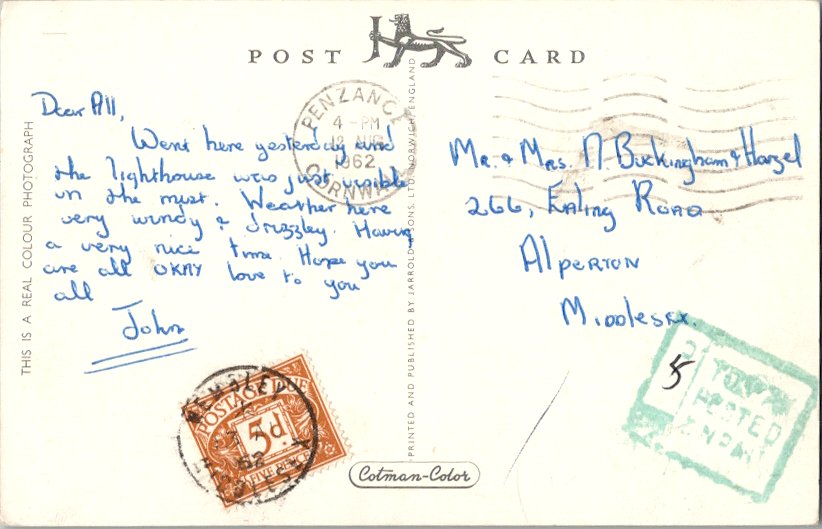 POST CARD
PENZANCE
4 - PM
1962
CORNWALL
Dear All,
Went here yesterday and
the lighthouse was just visible
in the mist. Weather here
very windy & drizzley. Having
a very nice time. Hope you
are all OKAY love to you
all
John
Mr. & Mrs. N. Buckingham & Hazel
266, Ealing Road
Alperton
Middlesex.
THIS IS A REAL COLOUR PHOTOGRAPH
PRINTED AND PUBLISHED BY JARROLD & SONS, LTD. NORWICH, ENGLAND
WEMBLEY
62
POSTAGE DUE
5d
FIVE PENCE
Cotman-Color
5
POSTED